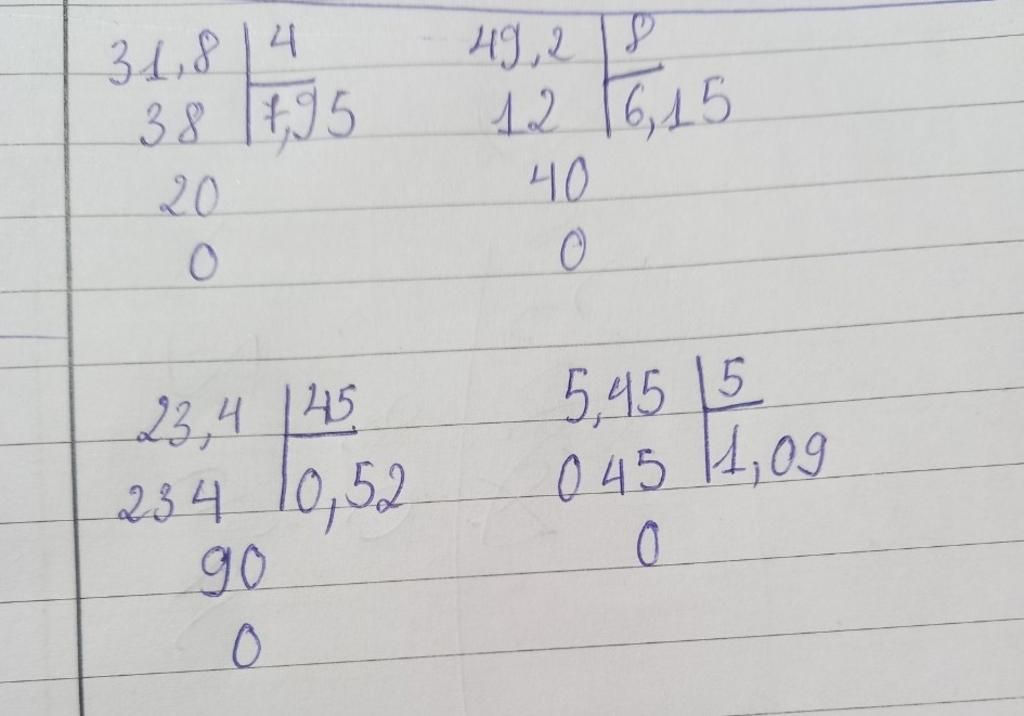 31,8 4 49,2 8
38 7,95 12 6,15
20 40
0 0
23,4 45 5,45 5
234 0,52 045 1,09
90 0
0